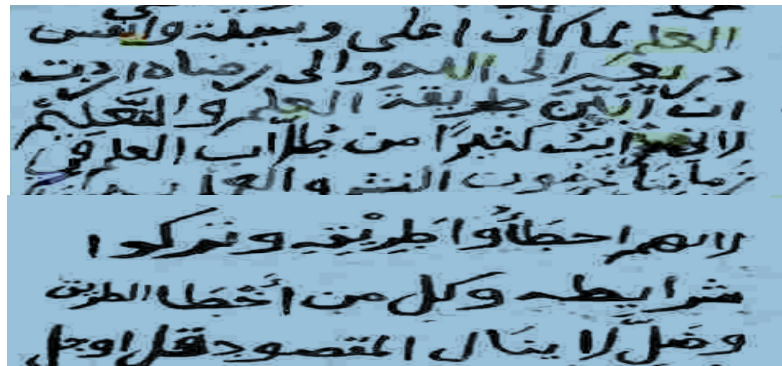 العلم لما كان اعلى وسيلة وانفس
ذريعه الى الله والى رضاه اردت
ان أبين طريقة العلم والتعلم
لاني رأيت كثيرًا من طلاب العلم في
زماننا
لانهم اخطأوا طريقه وتركوا
شرايطه وكل من أخطا الطريق
وضلّ لا ينال المقصود قل اوجل